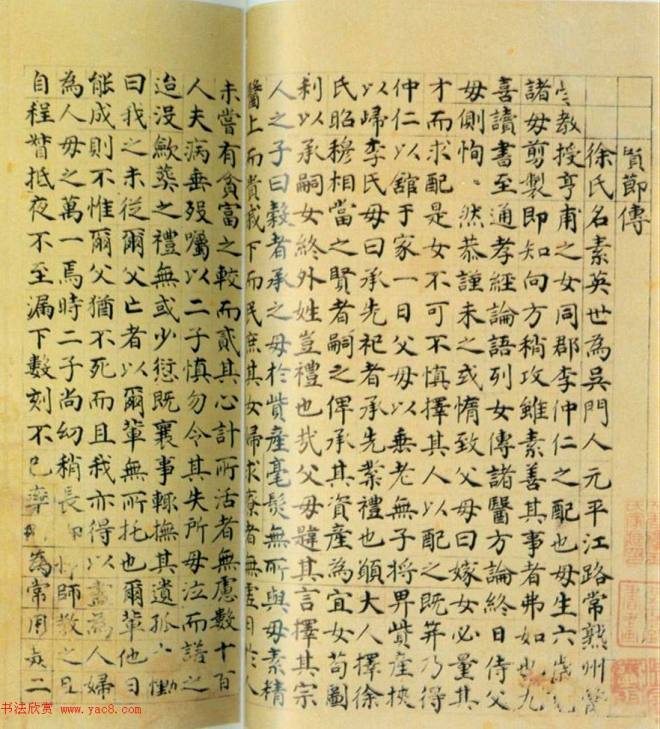 貞節傳
徐氏名素英世為吳門人元平江路常熟州
教授亨甫之女同郡李仲仁之配也母生六歲
諸母剪製即知向方稍攻雖素善其事者弗如也九
善讀書至通孝經論語列女傳諸醫方論終日侍父
母側恂〻然恭謹未之或惰致父母曰嫁女必量其
才而求配是女不可不慎擇其人以配之既笄乃得
仲仁以舘于家一日父母以無老無子將畀貲產挾
以歸李氏母曰承先祀者承先業禮也願大人擇徐
氏昭穆相當之賢者嗣之俾承其資產為宜女苟圖
利以承嗣女終外姓豈禮也哉父母韙其言擇其宗
人之子曰穀者承之母於貲產毫髮無所與母素精
醫上而貴戚下而民庶其女婦求療者無虛日於人
未嘗有貪富之較而貳其心計所活者無慮數十百
人夫病垂歿囑以二子慎勿令其失所母泣而諾之
迨沒歛塟之禮無或少愆既襄事輒撫其遺孤人慟
曰我之未從爾父亡者以爾輩無所托也爾輩他日
能成則不惟爾父猶不死而且我亦得以盡為人婦
為人母之萬一焉時二子尚幼稍長師教之
自程督抵夜不至漏下數刻不已藥為常用貞二
书法欣赏 www.yac8.com